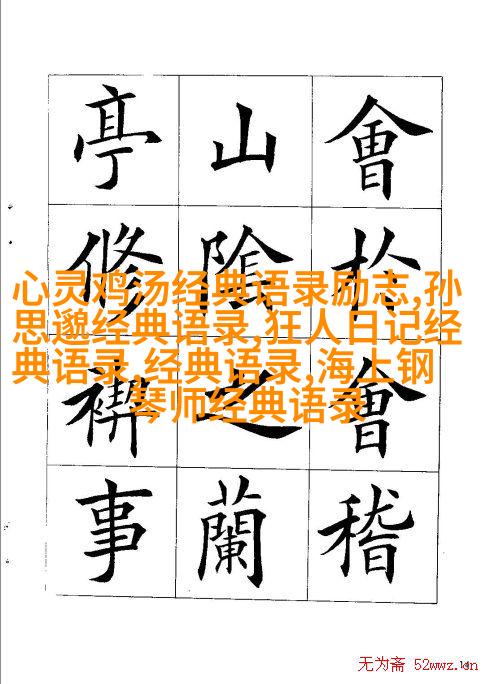 會於會稽
山陰之蘭
亭修禊事
心灵鸡汤经典语录励志,孙
思邈经典语录,狂人日记经
典语录,经典语录,海上钢
琴师经典语录
无为斋 52wwz.cn